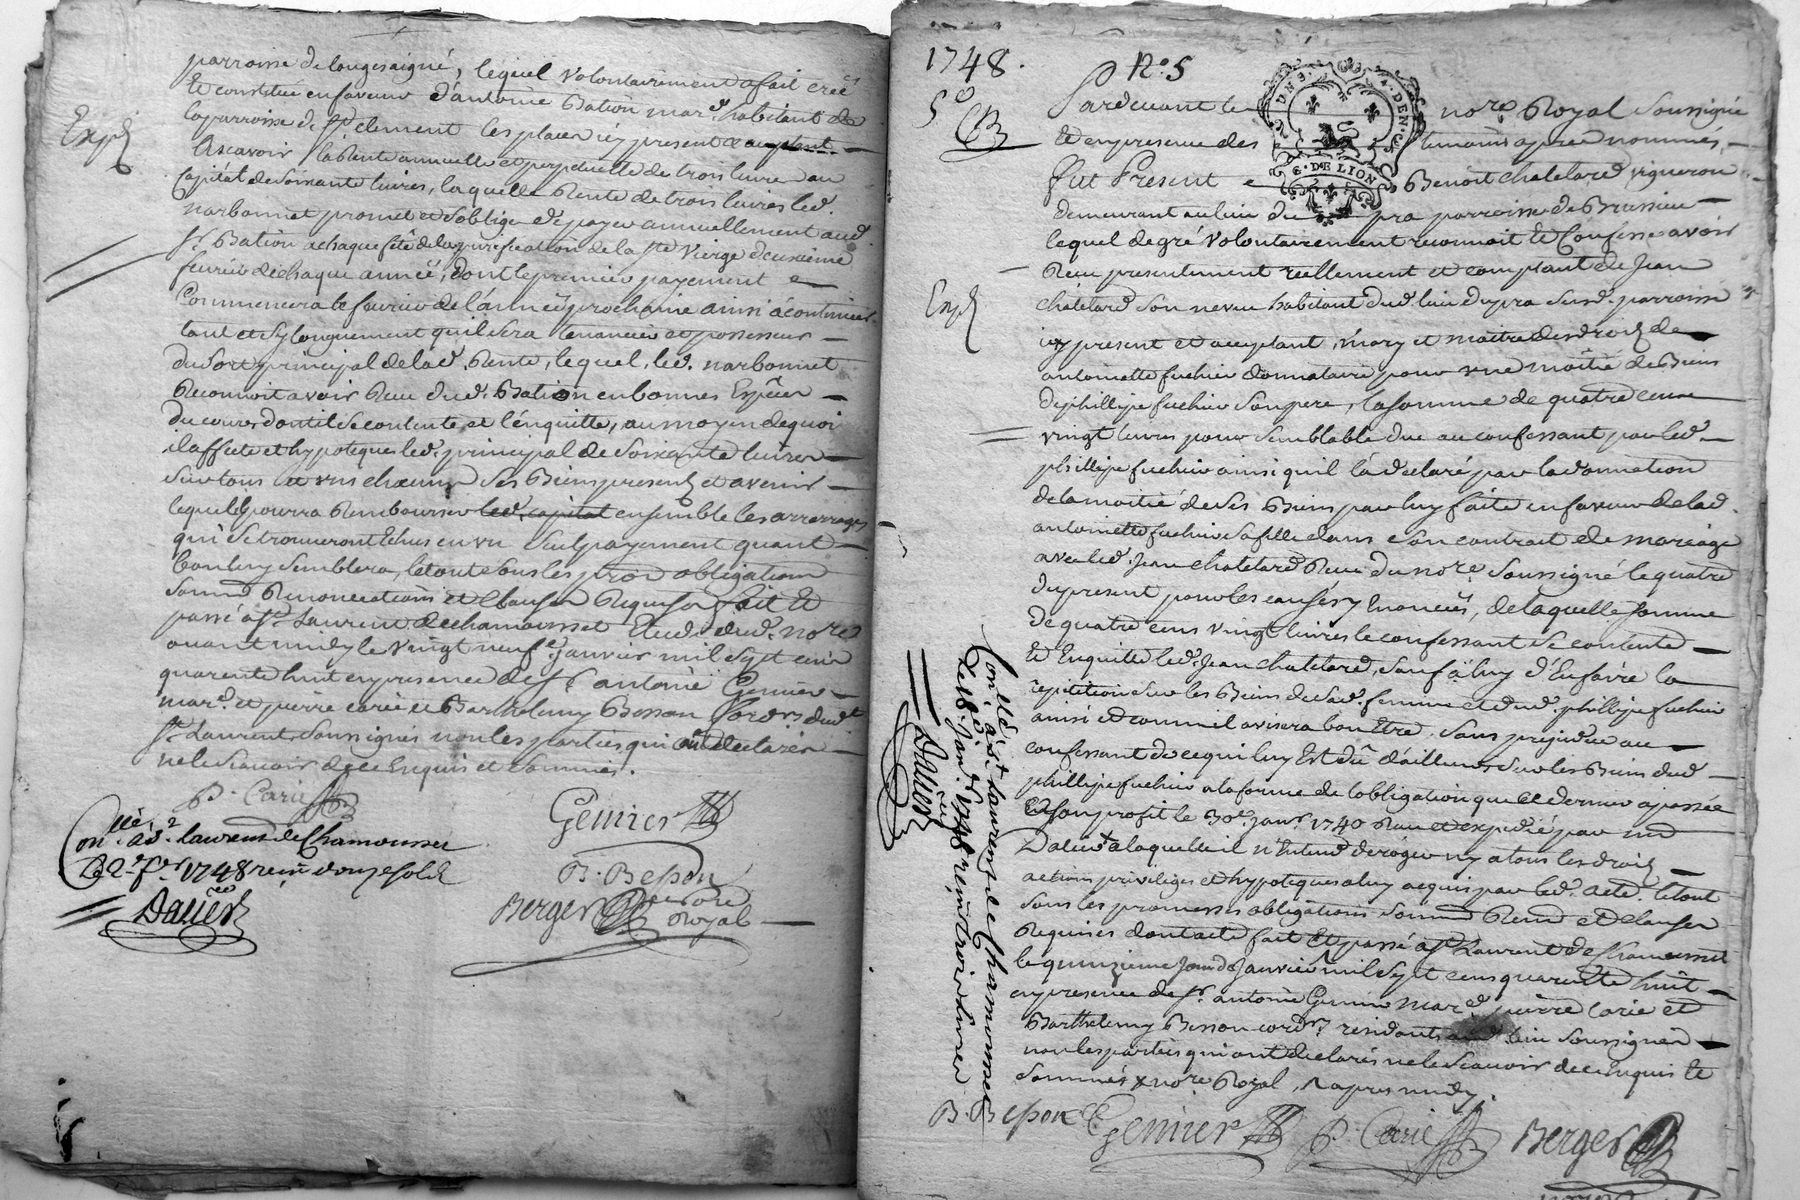 parroisse de longesaigne, lequel volontairement a fait créé
et constitué en faveur d'antoine Bation mar.d habitant de
la parroisse de St. clement les places icy present
Expd
Ascavoir la Rente annuelle et perpetuelle de trois livre au
Capital de soixante livres, laquelle Rente de trois livres led.
narbonnet promet et s'oblige de payer annuellement aud.
Sr. Bation a chaque fête de la purification de la Ste Vierge deuxieme
fevrier de chaque année, dont le premier payement
Commencera le fevrier de l'année prochaine ainsi à continuer
tant et sy longuement qu'il sera tenancier et possesseur
du sort principal de lad. Rente, lequel, led. narbonnet
Reconnoit avoir Reçu dud. Bation en bonnes Espéces
du cours dont il se contente et l'enquitte, au moyen de quoi
il affecte et hypoteque led. principal de soixante livres
sur tous et uns chacuns ses Biens presents et avenir
lequel pourra Rembourser led. capital ensemble les arrerages
qui se trouveront Echus en un seul payement quant
bon luy semblera, le tout sous les obligations
Renonciations et Clauses Requises fait Et
passé à St. Laurent de chamousset Etude dud. nore
avant midy le vingt neufe janvier mil sept cens
quarente huit en presence de Sr. antoine Genier
mar.d et pierre carie et Barthelemy Besson Cordrs dud.
St. Laurent soussignés non les parties qui ont declarés
ne le scavoir de ce Enquis et sommés.
P. Carie
Genier
Conllé. à St. Laurens de Chamousset
Le 2e. fer 1748 reçu douze sols
B. Besson
Dalier
Berger
Royal
1748.
No. 5
5e
Pardevant le nore. Royal Soussigné
et en presence des temoins apres nommés,
GEN. DE LION
fut Present Benoit chatelard vigneron
demeurant au lieu du pra parroisse de Brussieu
lequel de gré volontairement reconnoit et Confesse avoir
Reçu presentement reellement et comptant de Jean
Expd
chatelard son neveu habitant dud. lieu du pra susd. parroisse
icy present et acceptant, mary et maitre des droits de
antoinette fuchier donnataire pour une moitié de Biens
de phillipe fuchier son pere, la somme de quatre cens
vingt livres pour semblable due au confessant par led.
phillipe fuchier ainsi qu'il l'a declaré par la donnation
de la moitié de ses Biens par luy faite en faveur de lad.
antoinette fuchier sa fille dans son contrait de mariage
avec led. Jean chatelard Reçu du nore. Soussigné le quatre
du present pour les causes y Enoncées, de laquelle somme
de quatre cens vingt livres le confessant se contente
et Enquitte led. Jean chatelard, sauf à luy d'En faire la
repetition sur les Biens de sad. femme et dud. phillipe fuchier
ainsi et comme il avisera bon Etre, sans prejudice au
confessant de ce qui luy Est dû d'ailleurs sur les Biens dud
phillipe fuchier a la forme de l'obligation que ce dernier a passée
En son profit le 30e. janr. 1740 Reçue et expedié par
Dalier a laquelle il n'Entend deroger ny a tous les droits
actions privileges et hypoteques a luy acquis par led. acte. le tout
sous les promesses obligations Renon et clauses
Requises dont acte fait Et passé à St. Laurent de Chamousset
le quinzieme jour de janvier mil sept cens quarente huit
en presence de Sr. antoine Genier mar.d pierre carie et
Barthelemy Besson cordrs. residants lieu soussignés
non les parties qui ont declarés ne le scavoir de ce Enquis et
sommés nore Royal, apres midy.
Conllé. à St. Laurens de Chamousset
Le 18. janv. 1748 reçu trois livres
Dalier
B. Besson
Genier
P. Carie
Berger